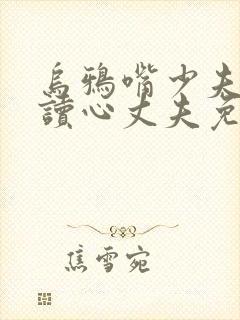 烏鴉嘴少夫
讀心丈夫免
焦雪宛